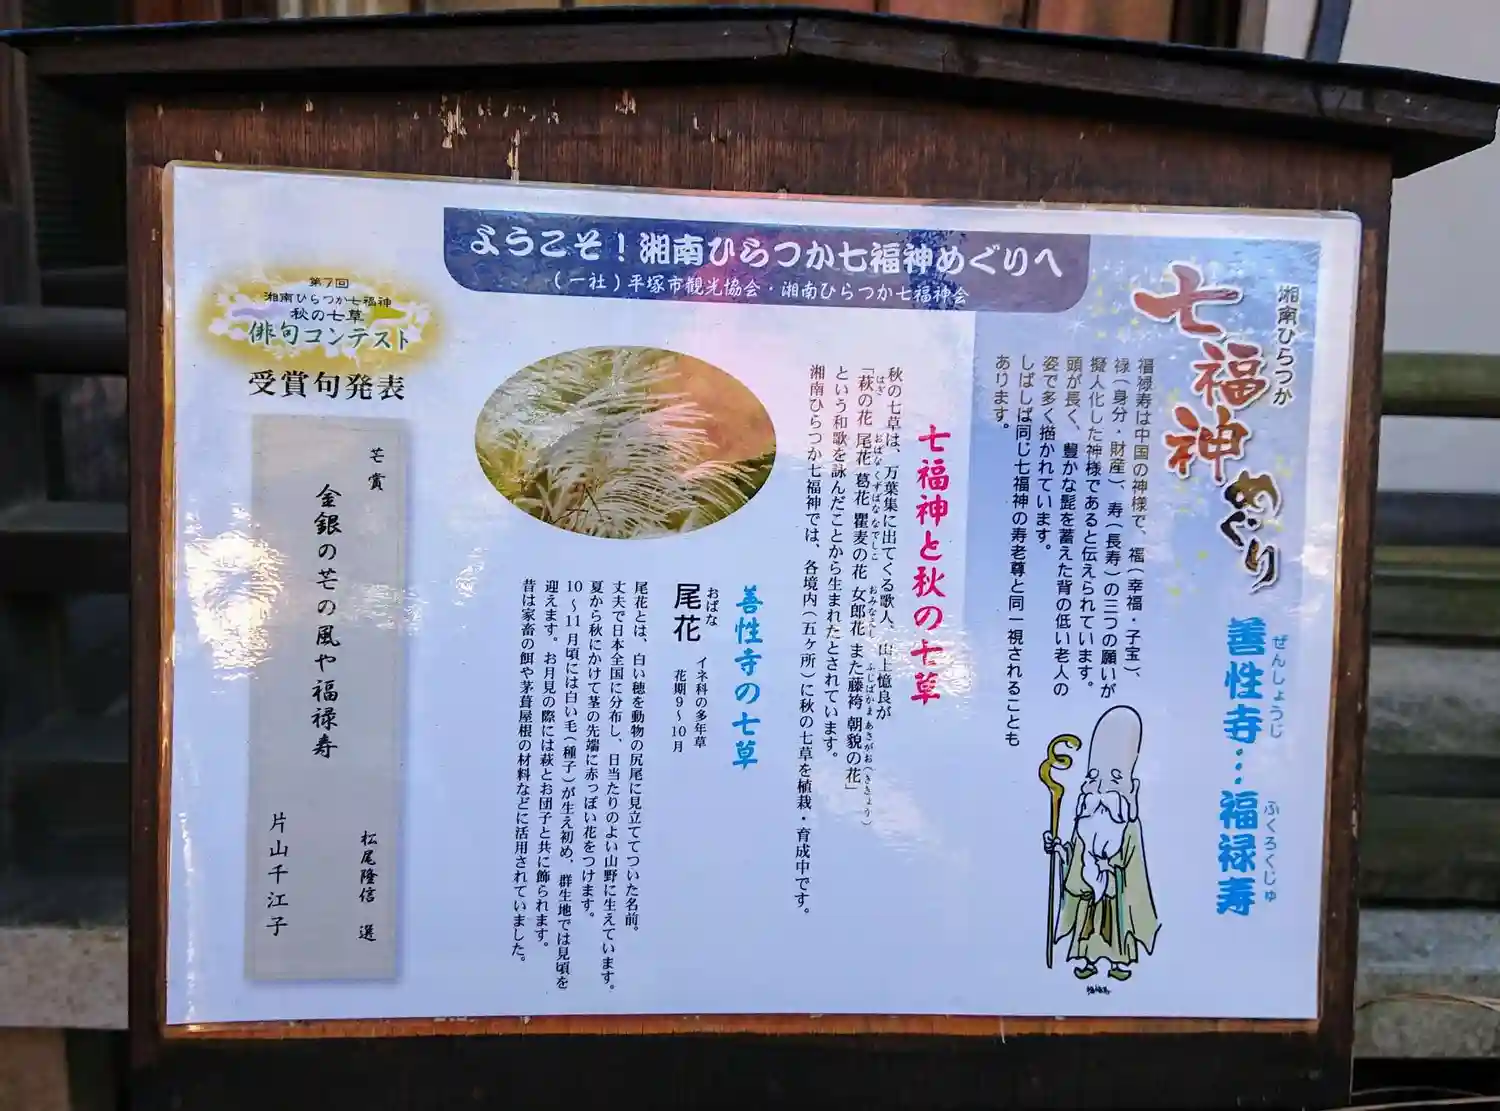 ようこそ！湘南ひらつか七福神めぐりへ
(一社)平塚市観光協会・湘南ひらつか七福神会
湘南ひらつか
七福神めぐり
善性寺…福禄寿
ぜんしょうじ
ふくろくじゅ
福禄寿は中国の神様で、福(幸福・子宝)、
禄(身分・財産)、寿(長寿)の三つの願いが
擬人化した神様であると伝えられています。
頭が長く、豊かな髭を蓄えた背の低い老人の
姿で多く描かれています。
しばしば同じ七福神の寿老尊と同一視されることも
あります。
七福神と秋の七草
秋の七草は、万葉集に出てくる歌人、山上憶良が
「萩の花 尾花 葛花 瞿麦の花 女郎花 また藤袴 朝貌の花」
はぎ おばな くずばな なでしこ おみなえし ふじばかま あさがお(ききょう)
という和歌を詠んだことから生まれたとされています。
湘南ひらつか七福神では、各境内(五ヶ所)に秋の七草を植栽・育成中です。
善性寺の七草
おばな
尾花
イネ科の多年草
花期9〜10月
尾花とは、白い穂を動物の尻尾に見立ててついた名前。
丈夫で日本全国に分布し、日当たりのよい山野に生えています。
夏から秋にかけて茎の先端に赤っぽい花をつけます。
10〜11月頃には白い毛(種子)が生え初め、群生地では見頃を
迎えます。お月見の際には萩とお団子と共に飾られます。
昔は家畜の餌や茅葺屋根の材料などに活用されていました。
第7回
湘南ひらつか七福神
秋の七草
俳句コンテスト
受賞句発表
芒賞
松尾隆信 選
金銀の芒の風や福禄寿
片山千江子